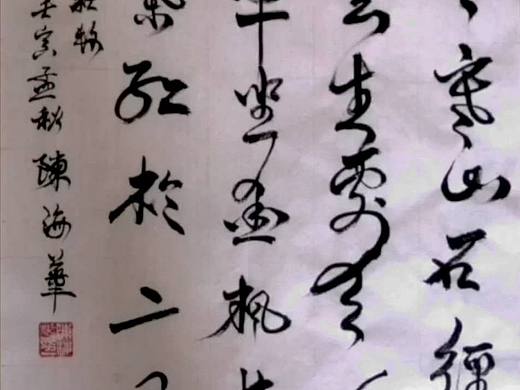 寒山石徑
云生處有
车坐愛枫林
葉紅於二月
壬寅孟秋 陳海華